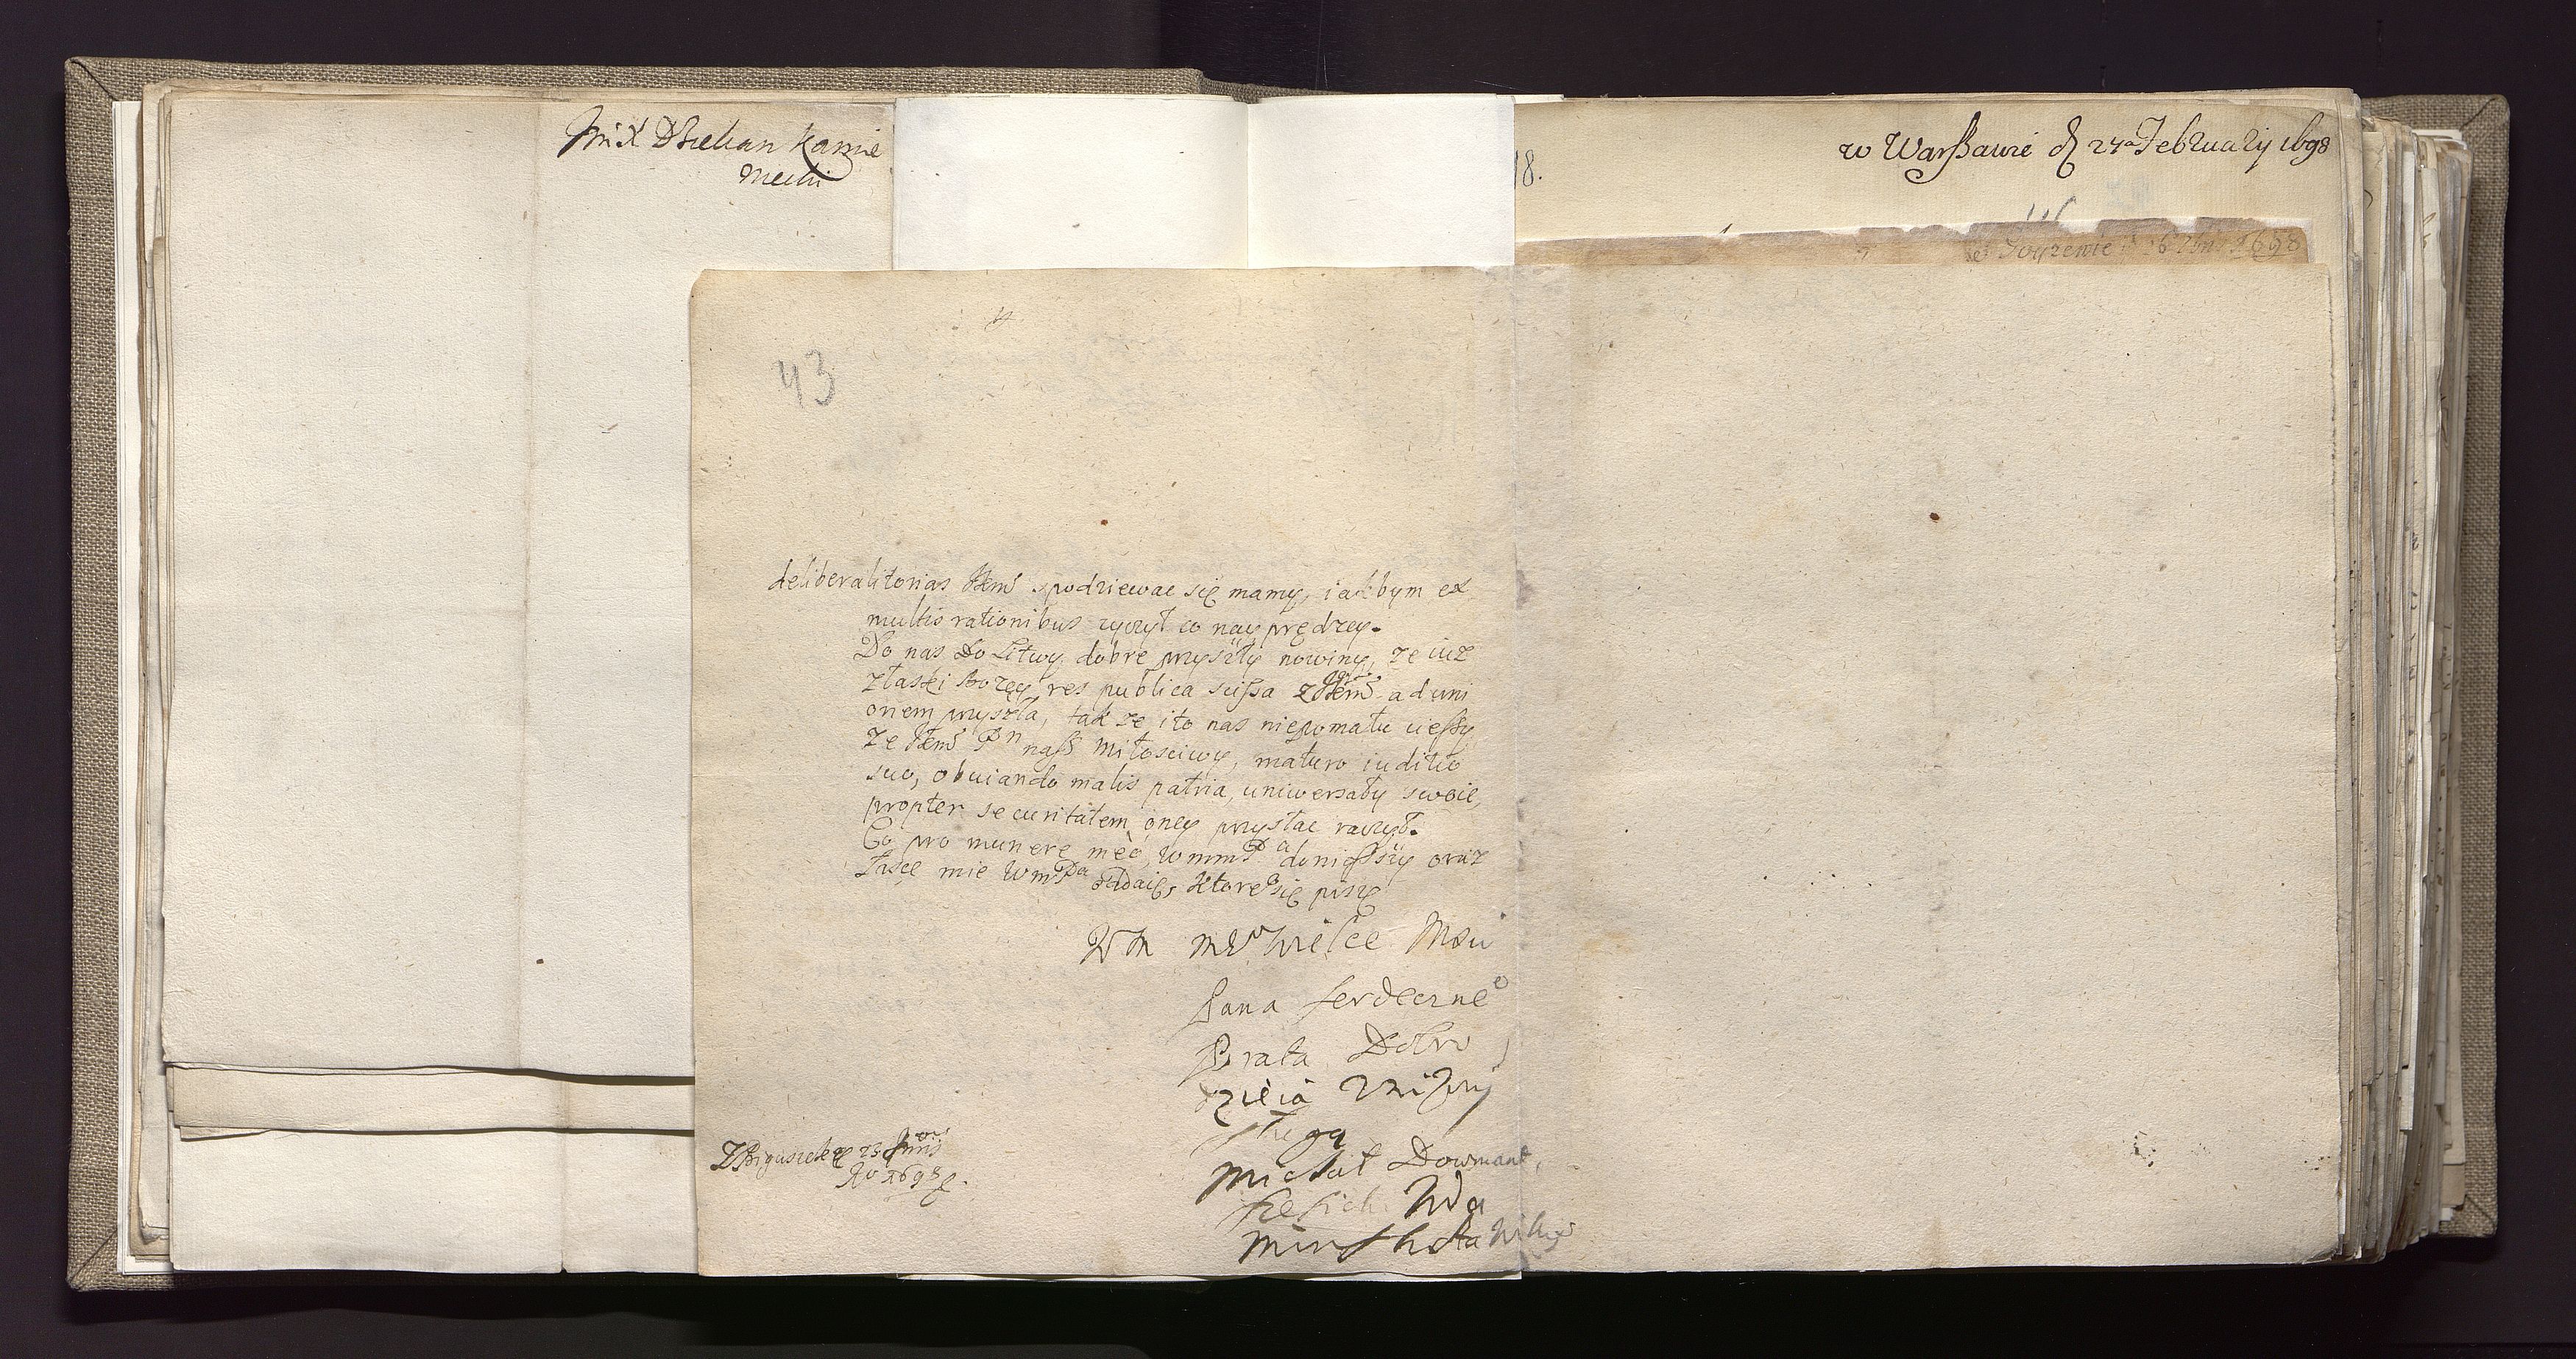 Kamie
18.
w Warszawie d 24a February 1698
1698
43
deliberalitorias spodziewac się mamy, iakbym ex
multis rationibus zyczył co nayprędzey.
Do nas do Litwy dobre przyszły nowiny, ze iuz
złaski Bozey, res publica scissa z ad uni
onem przyszła, tak ze i to nas niepomału cieszy
ze Pn nasz Miłosciwy, maturo iuditio
suo, obuiando malis patria, uniwersały swoie,
propter securitatem oney przysłac raczył.
Co pro munere meo, WmmPa doniosszy oraz
łasce mie WmPa oddaię, ktorego się piszę
Wm mo wielce Msci
Pana serdecznego
Brata Dobro
dzieia Unizony
sługa
Michał Dowmont
Siesicki Wda
23 Junii
Ao 1698